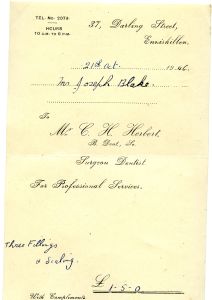 TEL. No. 2078
HOURS
10 A.M. TO 6 P.M.
37, Darling Street,
Enniskillen,
21st Oct 1946
Mr. Joseph Blake
To
Mr C. H. Herbert,
B. Dent. Sc.
Surgeon Dentist
For Professional Services.
Three Fillings
& Scaling.
£ 1-5-0
With Compliments